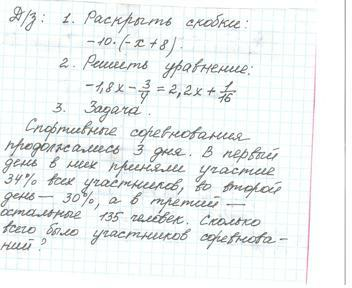 Д/з: 1. Раскрыть скобки:
-10·(-x+8)
2. Решить уравнение:
-1,8x - 3/4 = 2,2x + 1/16
3. Задача.
Спортивные соревнования
продолжались 3 дня. В первый
день в них приняли участие
34% всех участников, во второй
день — 30%, а в третий —
остальные 135 человек. Сколько
всего было участников соревнова-
ний?